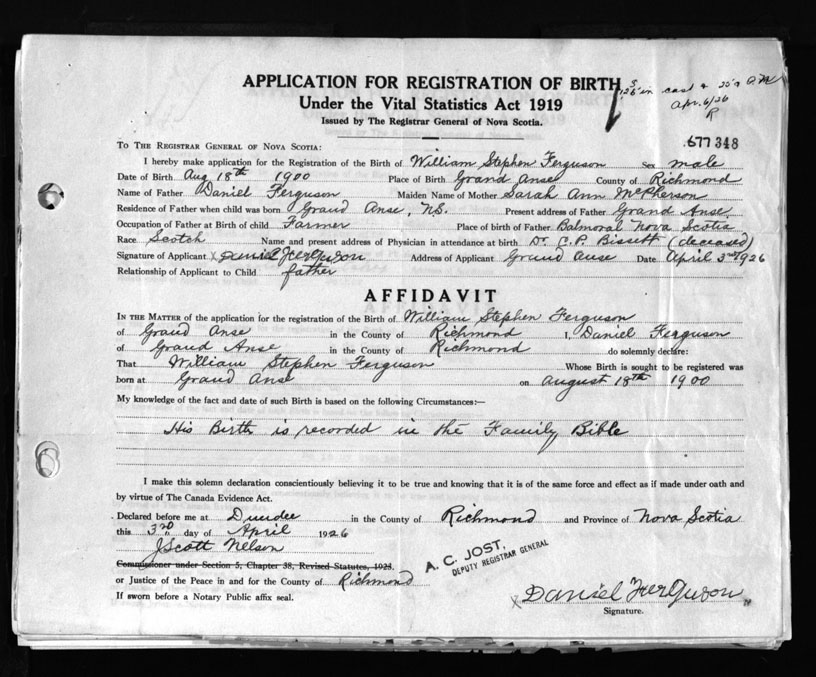 APPLICATION FOR REGISTRATION OF BIRTH
Under the Vital Statistics Act 1919
Issued by The Registrar General of Nova Scotia.
Apr. 6/26
R
677348
TO THE REGISTRAR GENERAL OF NOVA SCOTIA:
I hereby make application for the Registration of the Birth of William Stephen Ferguson Sex male
Date of Birth Aug 18th 1900 Place of Birth Grand Anse County of Richmond
Name of Father Daniel Ferguson Maiden Name of Mother Sarah Ann McPherson
Residence of Father when child was born Grand Anse, NS. Present address of Father Grand Anse
Occupation of Father at Birth of child Farmer Place of birth of Father Balmoral Nova Scotia
Race Scotch Name and present address of Physician in attendance at birth Dr. C. P. Bissett (deceased)
Signature of Applicant x Daniel Ferguson Address of Applicant Grand Anse Date April 3rd 1926
Relationship of Applicant to Child father
AFFIDAVIT
IN THE MATTER of the application for the registration of the Birth of William Stephen Ferguson
of Grand Anse in the County of Richmond I, Daniel Ferguson
of Grand Anse in the County of Richmond do solemnly declare:
That William Stephen Ferguson Whose Birth is sought to be registered was
born at Grand Anse on August 18th 1900
My knowledge of the fact and date of such Birth is based on the following Circumstances:—
His Birth is recorded in the Family Bible
I make this solemn declaration conscientiously believing it to be true and knowing that it is of the same force and effect as if made under oath and
by virtue of The Canada Evidence Act.
Declared before me at Dundee in the County of Richmond and Province of Nova Scotia
this 3rd day of April 1926
J Scott Nelson
Commissioner under Section 5, Chapter 38, Revised Statutes, 1923.
or Justice of the Peace in and for the County of Richmond
If sworn before a Notary Public affix seal.
A. C. JOST,
DEPUTY REGISTRAR GENERAL
x Daniel Ferguson
Signature.